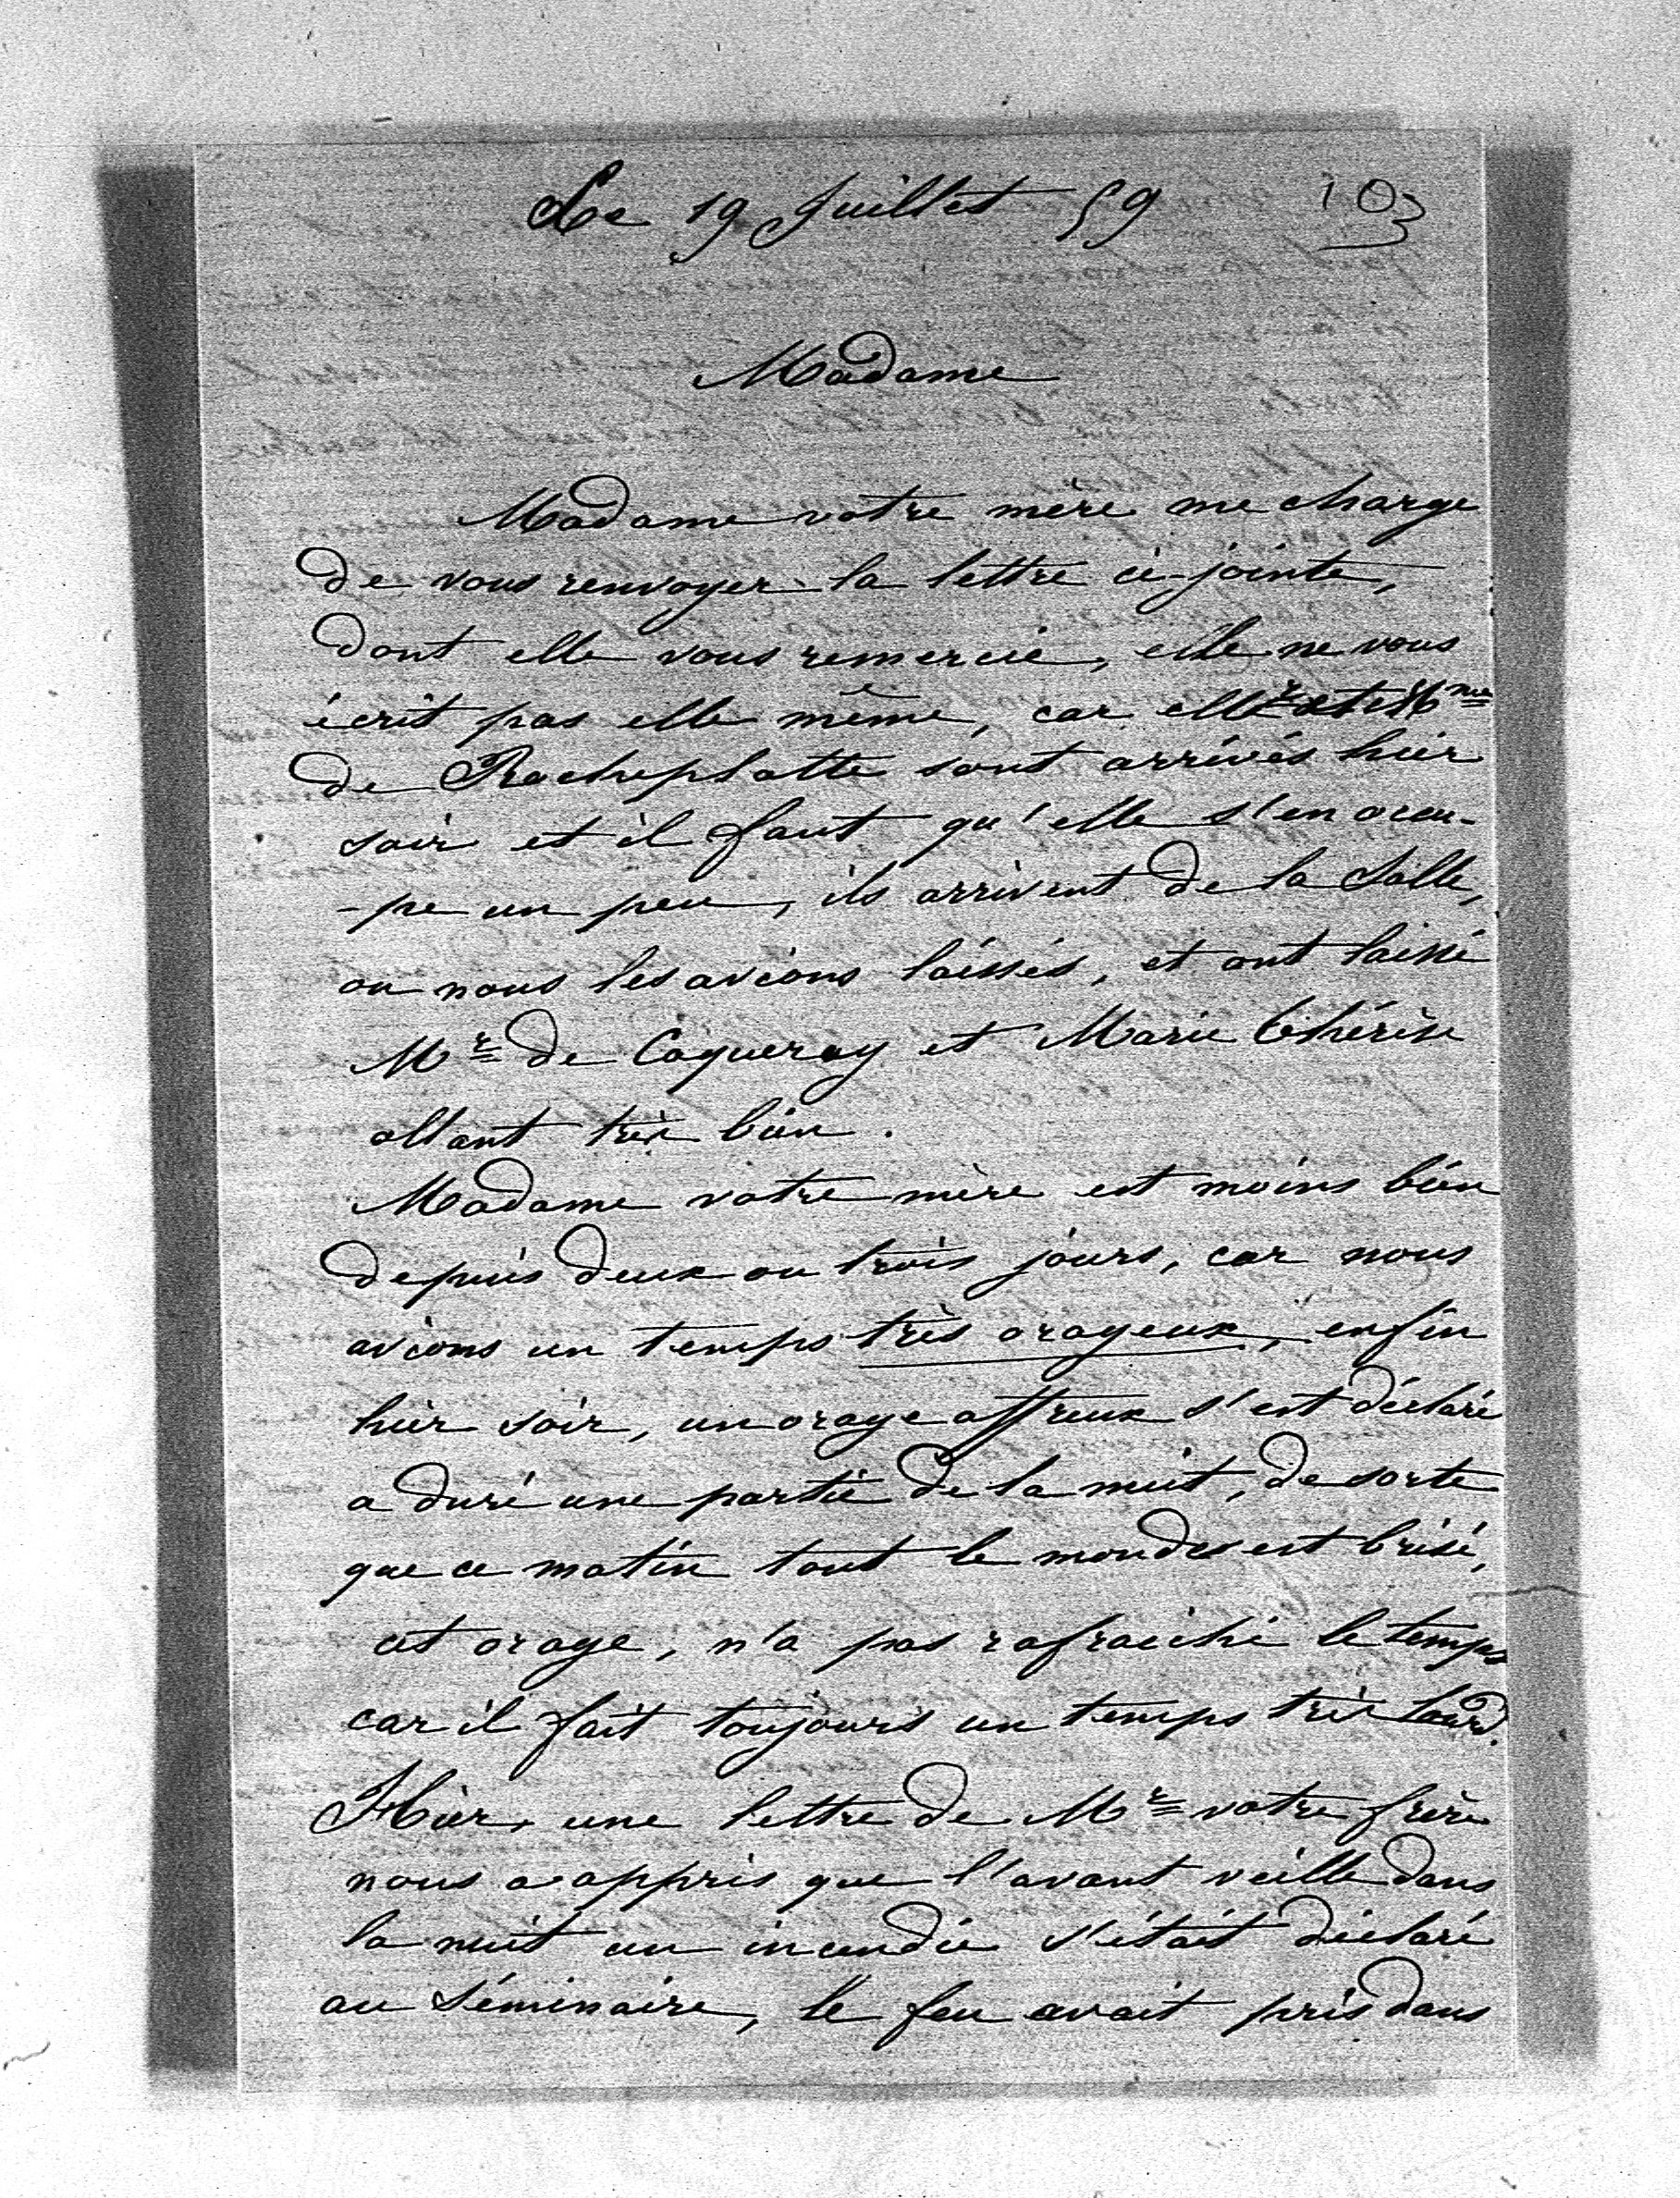 Le 19 Juillet 59
103
Madame
Madame votre mère me charge
de vous renvoyer la lettre ci-jointe,
dont elle vous remercie, elle ne vous
écrit pas elle même, car Mr et Mme
de Rocheplatte sont arrivés hier
soir et il faut qu'elle s'en occu-
-pe un peu, ils arrivent de la Salle,
ou nous les avions laissés, et ont laissé
Mr de Caqueray et Marie Thérèse
allant très bien.
Madame votre mère est moins bien
depuis deux ou trois jours, car nous
avions un temps très orageux, enfin
hier soir, un orage affreux s'est déclaré
a duré une partie de la nuit, de sorte
que ce matin tout le monde est brisé,
cet orage, n'a pas rafraichi le temps
car il fait toujours un temps très lourd.
Hier, une lettre de Mr votre frère
nous a appris que l'avant veille dans
la nuit un incendie s'était déclaré
au Séminaire, le feu avait pris dans